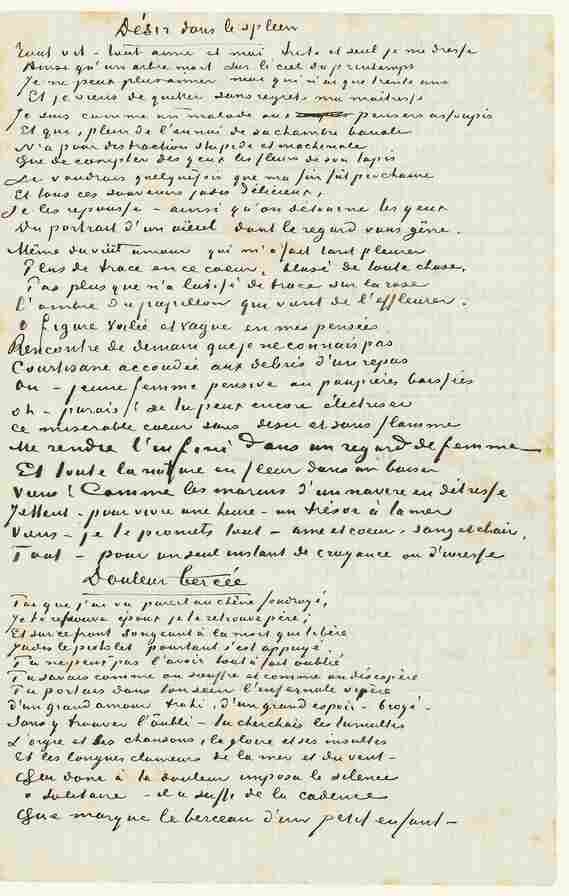 Désir dans le spleen
Tout vit - tout aime et moi triste et seul je me dresse
Ainsi qu'un arbre mort sur le ciel du printemps
Je ne peux plus aimer moi qui n'ai que trente ans
Et je viens de quitter sans regrets ma maîtresse
Je suis comme un malade aux pensers assoupis
Et que, plein de l'ennui de sa chambre banale
N'a pour distraction stupide et machinale
Que de compter des yeux les fleurs de son tapis
Je voudrais quelquefois que ma fin fût prochaine
Et tous ces souvenirs jadis délicieux,
Je les repousse - ainsi qu'on détourne les yeux
Du portrait d'un aïeul dont le regard vous gêne.
Même du vieil amour qui m'a fait tant pleurer
Plus de trace en ce coeur, blasé de toute chose,
Pas plus que n'a laissé de trace sur la rose
L'ombre du papillon qui vient de l'effleurer.
O figure voilée et vague en mes pensées
Rencontre de demain que je ne connais pas
Courtisane accoudée aux débris d'un repas
Ou - jeune femme pensive au paupières baissées
Oh - parais ! si tu peux encore électriser
Ce misérable coeur sans désir et sans flamme
Me rendre l'infini dans un regard de femme
Et toute la nature en fleur dans un baiser
Viens ! Comme les marins d'un navire en détresse
Jettent - pour vivre une heure - un trésor à la mer
Viens - je te promets tout - âme et coeur - sang et chair,
Tout - pour un seul instant de croyance ou d'ivresse
Douleur bercée
Toi que j'ai vu pareil au chêne foudroyé,
Je te retrouve époux je te retrouve père,
Et sur ce front songeant à la mort qui libère
Jadis le pistolet pourtant s'est appuyé
Tu ne peux pas l'avoir tout à fait oublié
Tu savais comme on souffre et comme on désespère
Tu portais dans ton sein l'infernale vipère
D'un grand amour trahi, d'un grand espoir - broyé -
Sans y trouver l'oubli - tu cherchais les tumultes
L'orgie et les chansons, la gloire et ses insultes
Et les longues clameurs de la mer et du vent -
Qui donc à ta douleur imposa le silence
O solitaire - il a suffi de la cadence
Que marque le berceau d'un petit enfant -